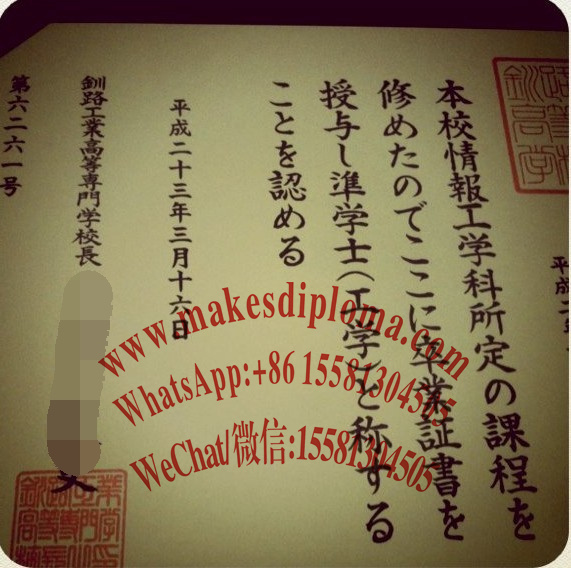 本校情報工学科所定の課程を
修めたのでここに卒業証書を
授与し準学士(工学)と称する
ことを認める
平成二十三年三月十六日
釧路工業高等専門学校長
第六二六一号
平成二
www.makesdiploma.com
WhatsApp:+86 15581304505
WeChat/微信:15581304505